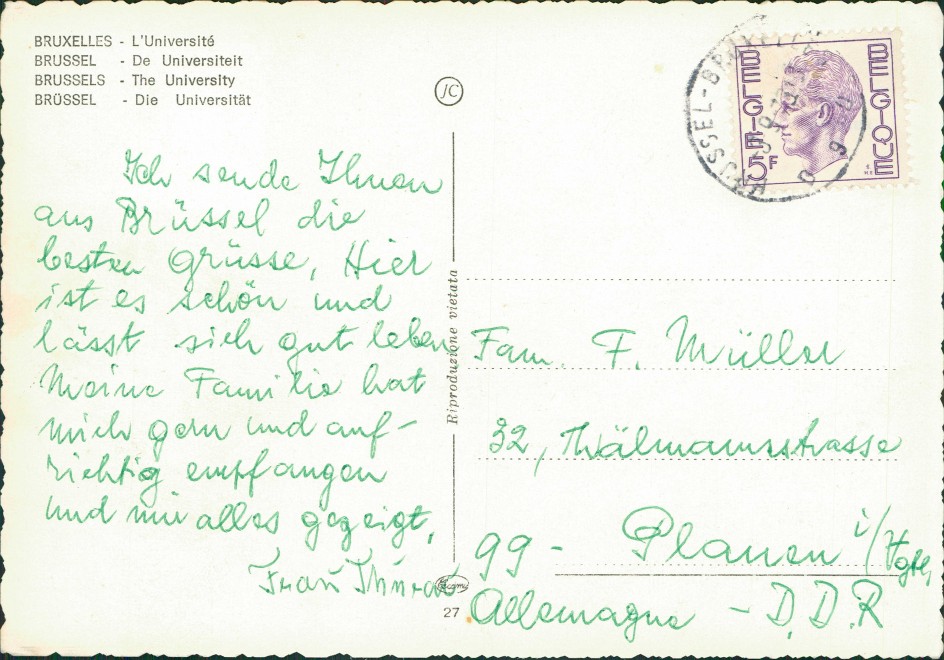 BRUXELLES - L'Université
BRUSSEL - De Universiteit
BRUSSELS - The University
BRÜSSEL - Die Universität
JC
Ich sende Ihnen
aus Brüssel die
besten Grüsse, Hier
ist es schön und
lässt sich gut leben
Meine Familie hat
mich gern und auf-
richtig empfangen
und mir alles gezeigt,
Frau
27
Riproduzione vietata
BELGIQUE
BELGIE 5F
BRUSSEL-BRUXELLES
Fam. F. Müller
32, Thälmannstrasse
99 - Plauen i/Vgtl,
Allemagne - D.D.R